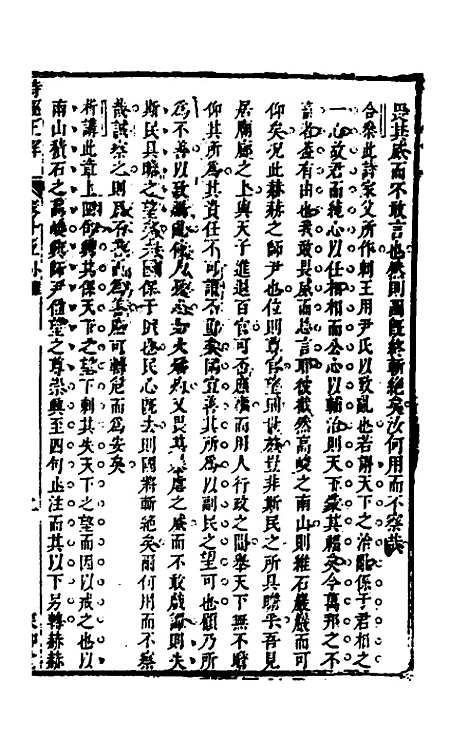 畏其威而不敢言也然則國旣終斬絕矣汝何用而不察哉
合參此詩家父所作刺王用尹氏以致亂也若謂天下之治亂係于君相之
一心故君而純心以任相相而公心以輔治則天下蒙其福矣今萬邦之不
寧者蓋有由也我敢畏威而忘言耶彼截然高峻之南山則維石巖巖而可
仰矣況此赫赫之師尹也位則尊官望則世族豈非斯民之所具瞻乎吾見
居廟廊之上與天子進退百官可否庶務而用人行政之間舉天下無不瞻
仰其所為其責任不可謂不重矣固宜善其所為以副民之望可也顧乃所
為不善以致禍亂使人憂心如火燔灼又畏其暴虐之威而不敢戲談則失
斯民具瞻之望矣夫國保于民也民心旣去則國將斬絕矣爾何用而不察
哉誠察之則民不善而為善處可轉危而為安矣
析講此章上四句興其保天下之望下刺其失天下之望而因以戒之也以
南山積石之高峻興師尹位望之尊崇興至四句止注而其以下另轉赫赫
詩經正解